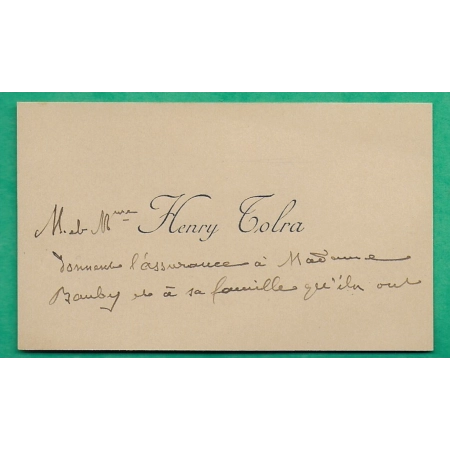 M. et Mme Henry Tolra
donnent l'assurance à Madame
Bauby et à sa famille qu'ils ont